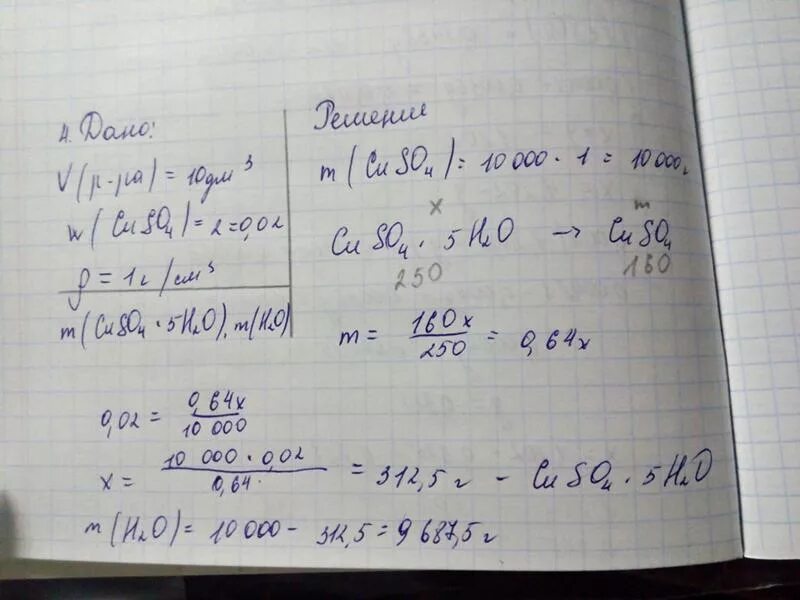 4. Дано:
V(р-ра) = 10 дм³
w(CuSO₄) = 2 = 0,02
ρ = 1 г/см³
m(CuSO₄·5H₂O), m(H₂O)
Решение
m(CuSO₄) = 10 000 · 1 = 10 000г
x m
CuSO₄ · 5H₂O → CuSO₄
250 160
m = 160x / 250 = 0,64x
0,02 = 0,64x / 10 000
x = 10 000 · 0,02 / 0,64 = 312,5 г - CuSO₄ · 5H₂O
m(H₂O) = 10 000 - 312,5 = 9 687,5 г